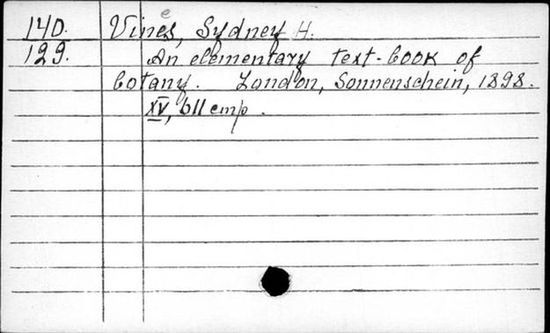 140. Vines, Sydney H.
129. An elementary text-book of
botany. London, Sonnenschein, 1898.
XV, 611 emp.